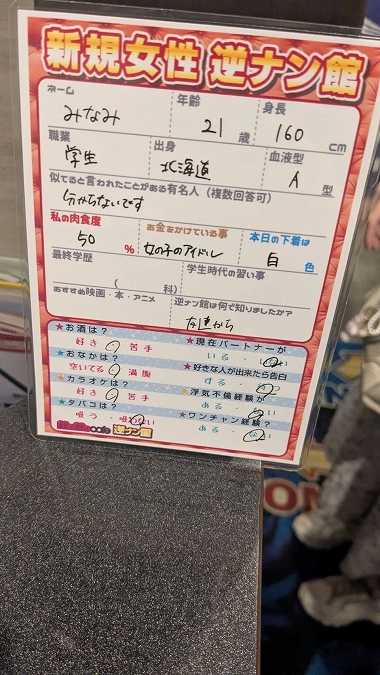 新規女性 逆ナン館
ネーム 年齢 身長
みなみ 21歳 160cm
職業 出身 血液型
学生 北海道 A型
似てると言われたことがある有名人(複数回答可)
分からないです
私の肉食度 お金をかけている事 本日の下着は
50% 女の子のアイドル 白色
最終学歴 学生時代の習い事
( 科)
おすすめ映画・本・アニメ 逆ナン館は何で知りましたか?
友達から
★お酒は? ★現在パートナーが
好き・苦手 いる・いない
★おなかは? ★好きな人が出来たら告白
空いてる・満腹 する・
★カラオケは? ★浮気不倫経験が
好き・苦手 ある・
★タバコは? ★ワンチャン経験?
吸う・吸わない ある・ない
MoMocafe 逆ナン館